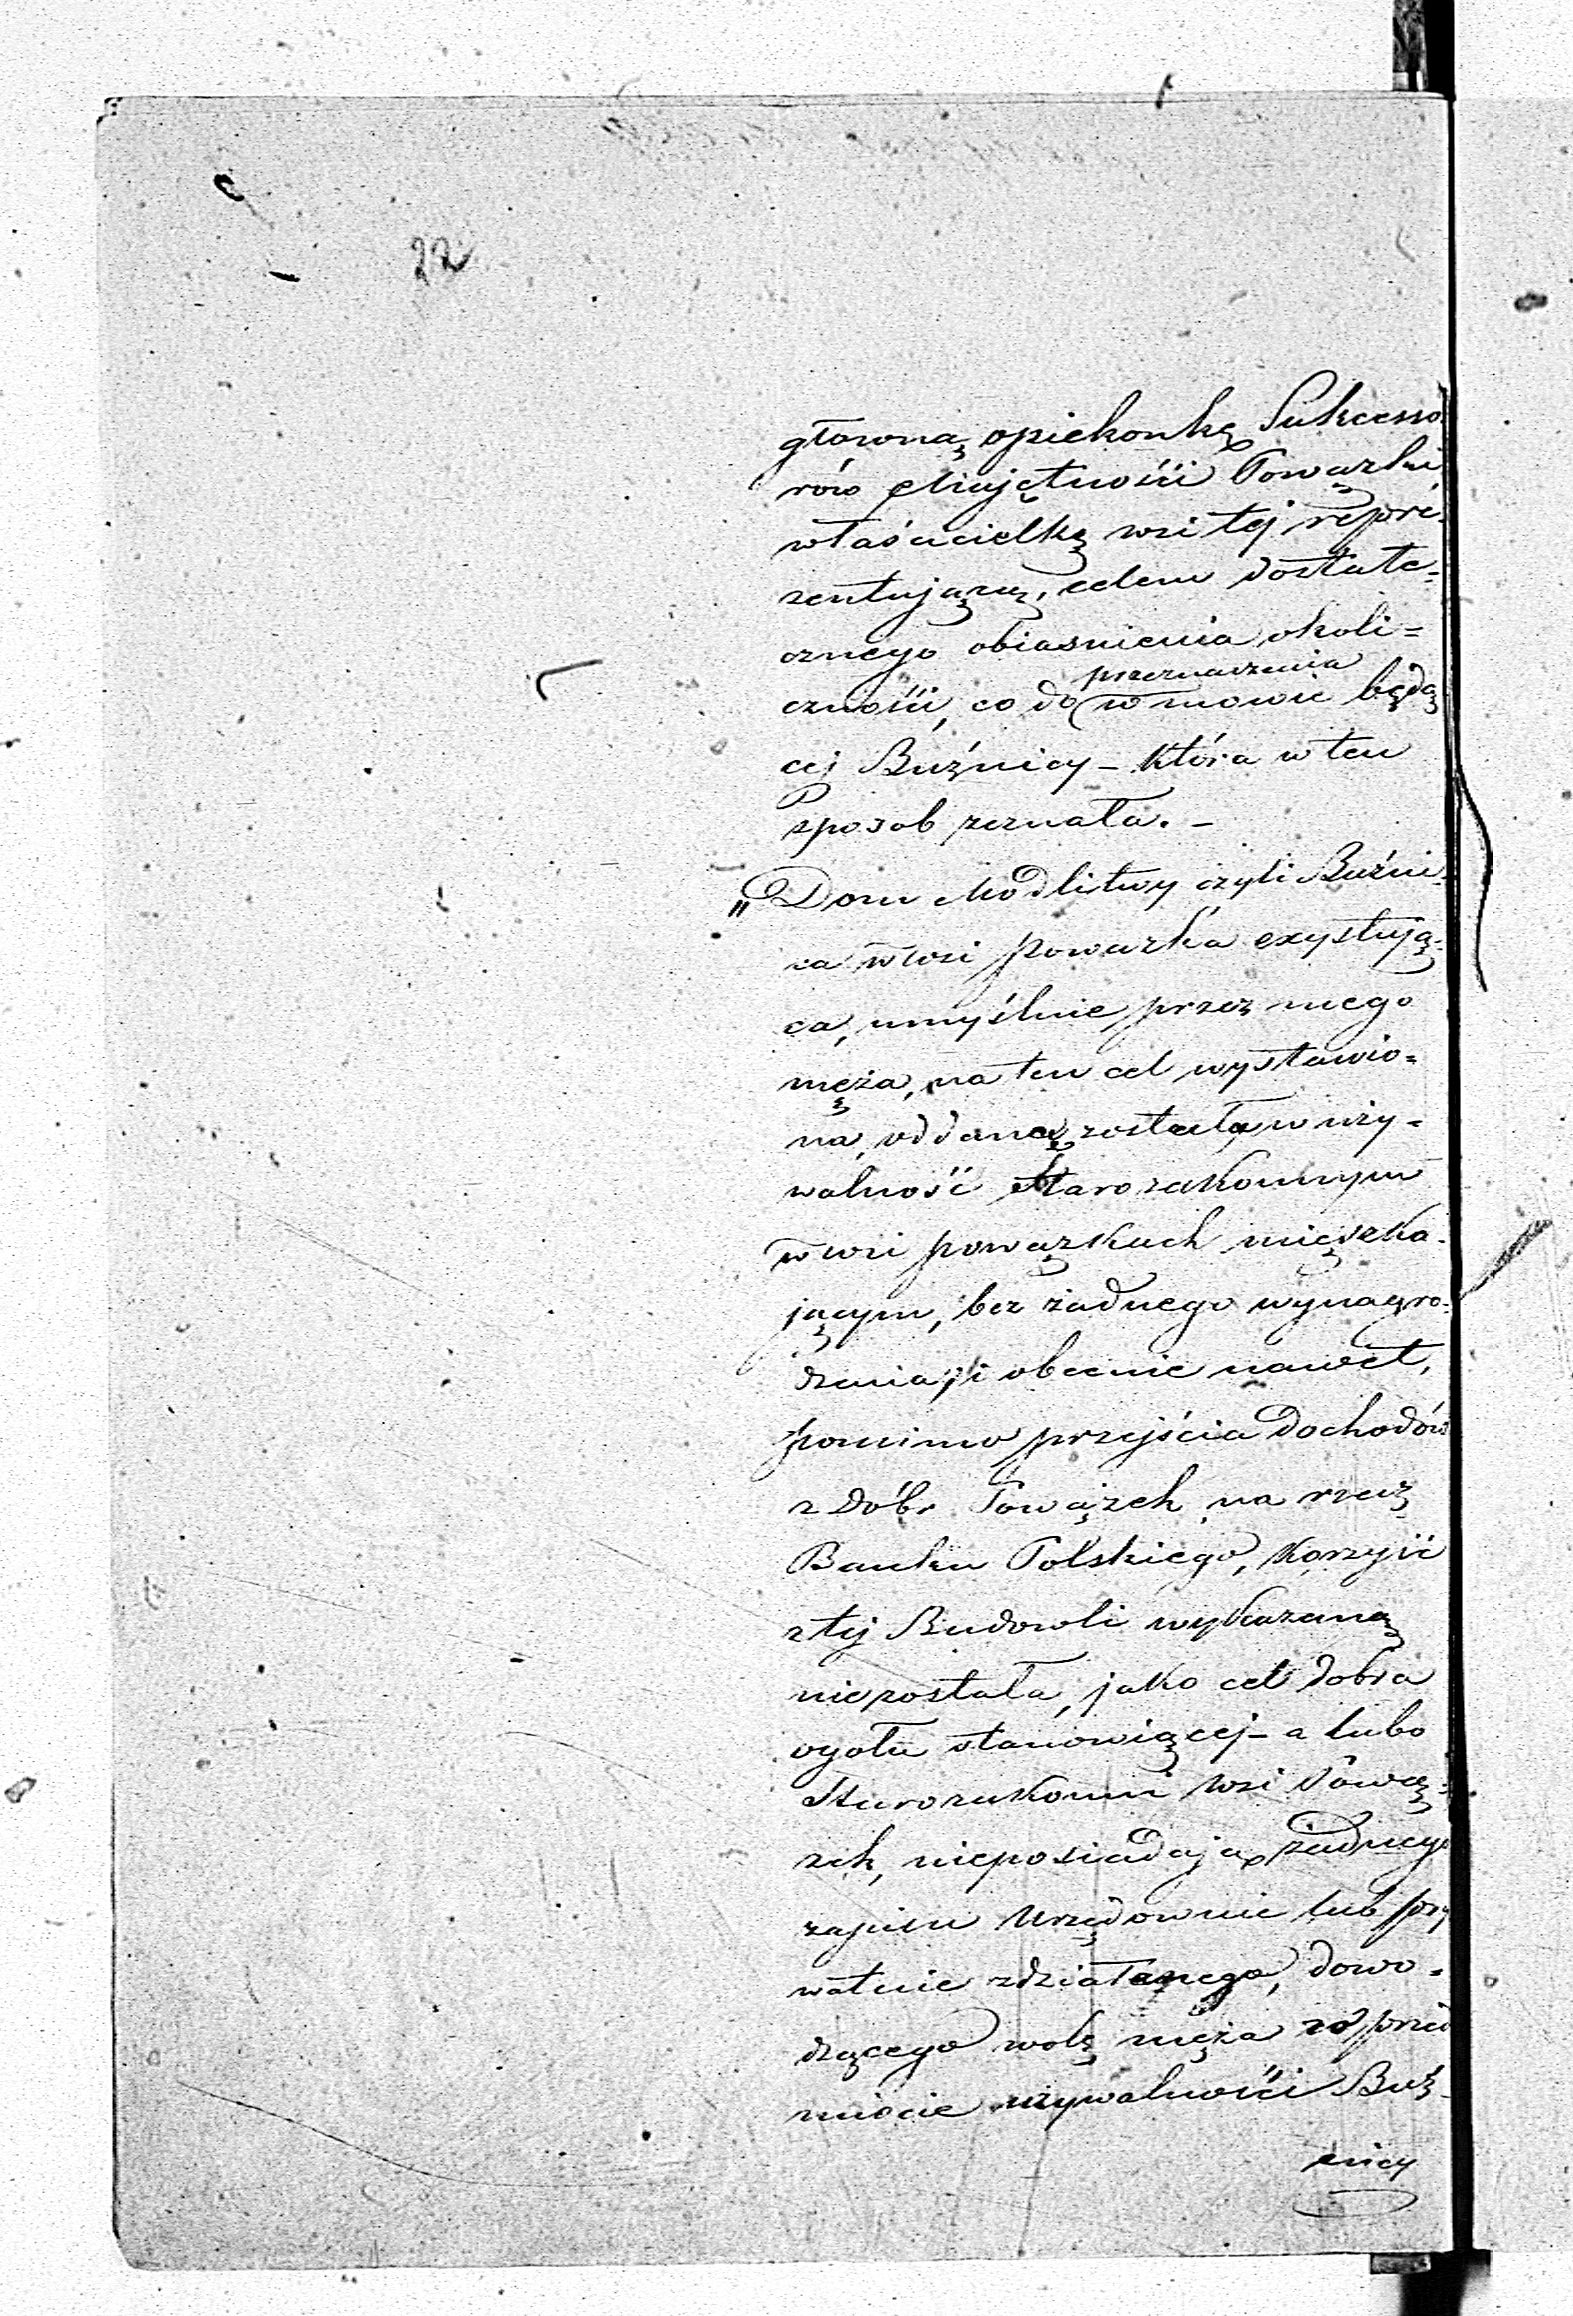 22
główną opiekonkę Sukcesso
rów Majętności Powązki
właścicielkę wsi tej repre-
zentującą, celem dostate-
cznego obiasnienia okoli=
przeznaczenia
czności, co do w mowie będą
cej Buźnicy – która w ten
sposob zeznała. –
„Dom Modlitwy czyli Buźni-
ca w wsi Powązka exystują-
ca, umyślnie przez mego
męża, na ten cel wystawio=
na, oddaną została w uży=
walność Starozakonnym
w wsi powązkach mięszka-
jącym, bez żadnego wynagro-
dzenia, i obecnie nawet,
pomimo przejścia dochodów
z dóbr Powązek na rzecz
Banku Polskiego, korzyść
z tej Budowli wykazaną
niezostała, jako cel dobra
ogółu stanowiącej – a lubo
Starozakonni wsi Pową-
zek, nieposiadają żadnego
zapisu Urzędownie lub pry
watnie zdziałanego, dowo=
dzącego wolę męża w przed
miocie używalności Buź-
nicy